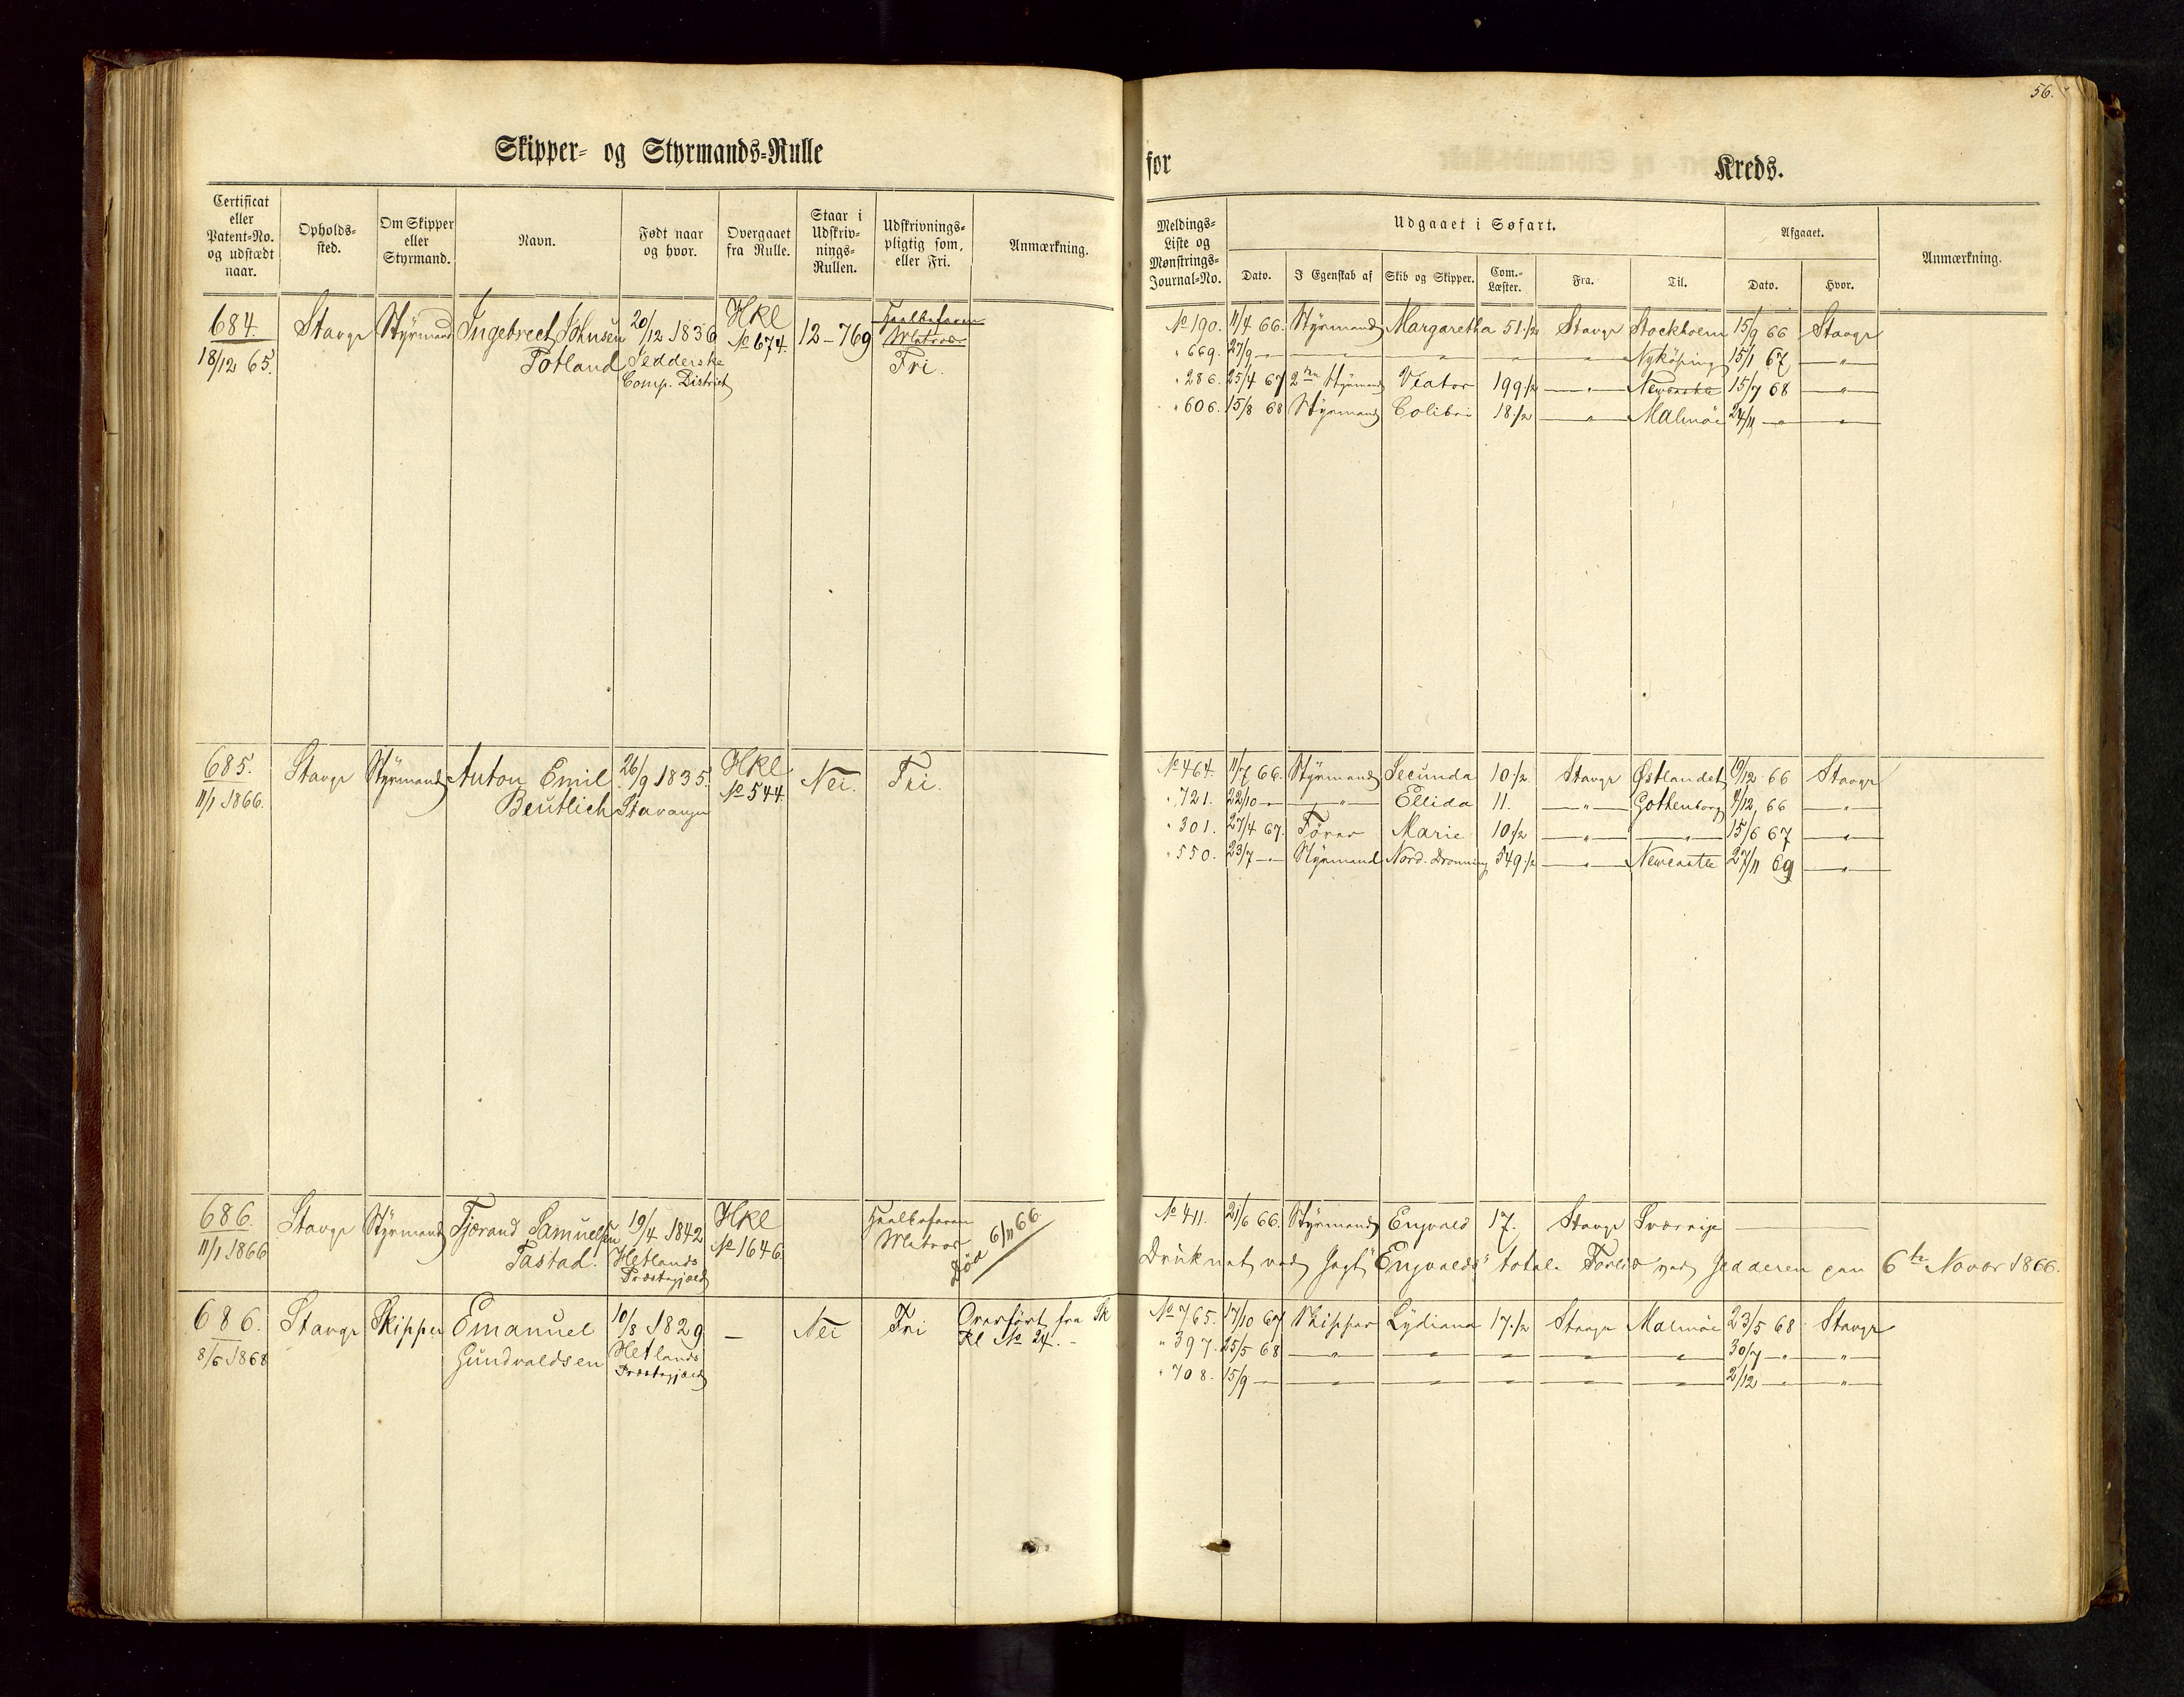 56.
Skipper- og Styrmands-Rulle
for
Kreds.
Certificat eller Patent-No. og udstædt naar.
Opholds-sted.
Om Skipper eller Styrmand.
Navn.
Født naar og hvor.
Overgaaet fra Rulle.
Staar i Udskriv-nings-Rullen.
Udskrivnings-pligtig som, eller Fri.
Anmærkning.
Meldings-Liste og Mønstrings-Journal-No.
Udgaaet i Søfart.
Dato.
I Egenskab af
Skib og Skipper.
Com.-Læster.
Fra.
Til.
Afgaaet.
Dato.
Hvor.
Anmærkning.
684. Stavgr Styrmand Ingebrect Johnsen 20/12 1836 Hkl 12-769 Heelbefaren
18/12 65. Totland Jedderske No 674. Matros
Comp. District Fri.
No 190. 11/4 66. Styrmand Margaretha 51 1/2 Stavgr Stockholm 15/9 66 Stavgr
" 669. 27/9 — — " " — " — Nyköping 15/1 67 — " —
" 286. 25/4 67 2den Styrmand Viator 199 1/2 — " — Newcastle 15/7 68 — " —
" 606. 15/8 68 Styrmand Colibri 18 1/2 — " — Malmöe 24/11 — " — — " —
685. Stavgr Styrmand Anton Emil 26/9 1835. Hkl Nei. Fri.
11/1 1866. Beutlich Stavanger No 544.
No 464. 11/7 66. Styrmand Secunda 10 1/2 Stavgr Østlandet /12 66 Stavgr
" 721. 22/10 — " — — " — Ellida 11. — " — Gothenborg /12 66 — " —
" 301. 27/4 67. Fører Marie 10 1/2 — " — — " — 15/6 67 — " —
" 550. 23/7 — " — Styrmand Nord. Dronning 549 1/2 — " — Newcastle 27/11 69 — " —
686. Stavgr Styrmand Tjørand Samuelsen 19/4 1842 Hkl Heelbefaren
11/1 1866 Tastad. Hetlands No 1646. Matros Død 6/11 66.
Præstegjæld
No 411. 21/6 66. Styrmand Engvald 17. Stavgr Sverrige — —
Druknet ved Jagt "Engvalds" totale Forlis ved Jedderen den 6te Novbr 1866.
686. Stavgr Skipper Emanuel 10/8 1829 — Nei Fri Overført fra Sk
8/6 1868 Gundvaldsen Hetlands Kl No 24. —
Præstegjæld
No 765. 17/10 67 Skipper Lydiana 17 1/2 Stavgr Malmöe 23/5 68 Stavgr
" 397. 25/5 68 — " — — " — — " — — " — — " — 30/7 — " — " —
" 708. 15/9 — — " — — " — — " — — " — — " — 2/12 — " — " —